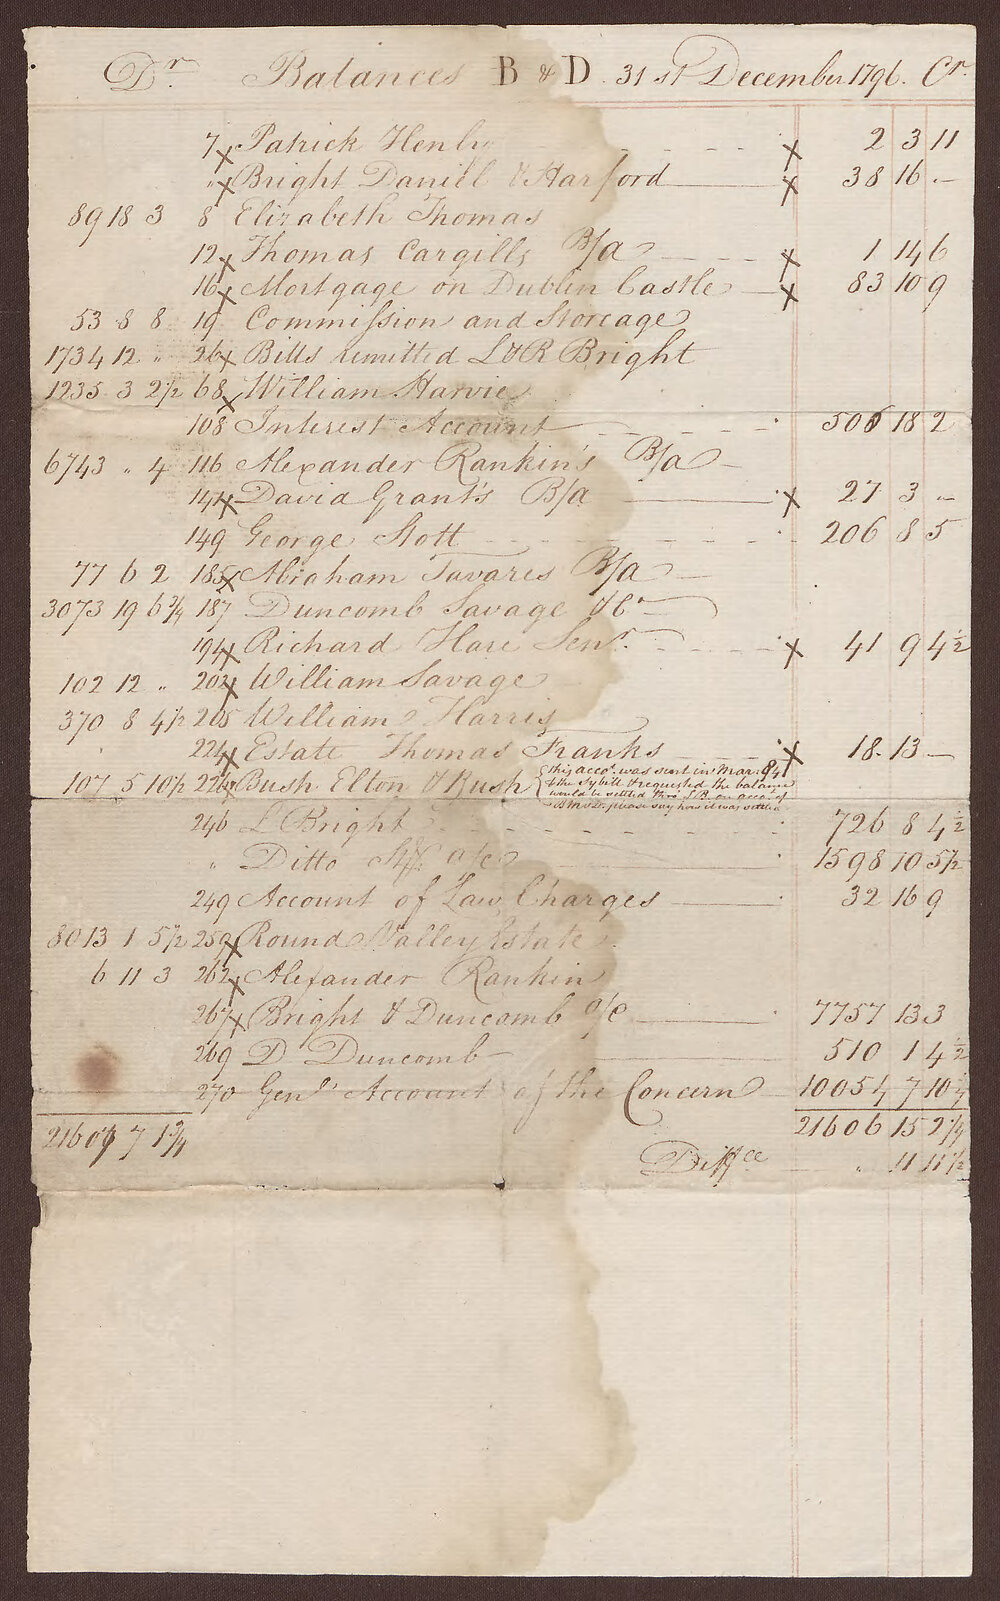 Dr. Balances B & D. 31st December 1796. Cr.
7 x Patrick Henly x 2 3 11
" x Bright Daniel & Harford x 38 16 -
89 18 3 8 Elizabeth Thomas
12 x Thomas Cargills B/a x 1 14 6
16 x Mortgage on Dublin Castle x 83 10 9
53 8 8 19 Commission and Storeage
1734 12 " 26 x Bills remitted L & R Bright
1235 3 2 1/2 68 x William Harvie
108 Interest Account 506 18 2
6743 " 4 116 Alexander Rankin's B/a
144 x David Grant's B/a x 27 3 "
149 George Stott 206 8 5
77 6 2 185 x Abraham Tavares B/a
3073 19 6 3/4 187 Duncomb Savage & Co
194 x Richard Hare Senr. x 41 9 4 1/2
102 12 " 202 x William Savage
370 8 4 1/2 205 William Harris
224 x Estate Thomas Franks x 18. 13 -
107 5 10 1/2 226 x Bush Elton & Rush
this acct. was sent in Mar: 94
& the Sybill & requested the balance
would be settled thro' L B. on acct. of
please say how it was settled
246 L Bright 726 8 4 1/2
" Ditto a/c 1598 10 5 1/2
249 Account of Law Charges 32 16 9
8013 1 5 1/2 259 x Round Valley Estate
6 11 3 262 x Alexander Rankin
267 x Bright & Duncomb a/c 7757 13 3
269 D Duncomb 510 1 4 1/2
270 Genl. Account of the Concern 10054 7 10 1/4
21607 7 1 3/4 21606 15 2 1/4
Diffce " 11 11 1/2